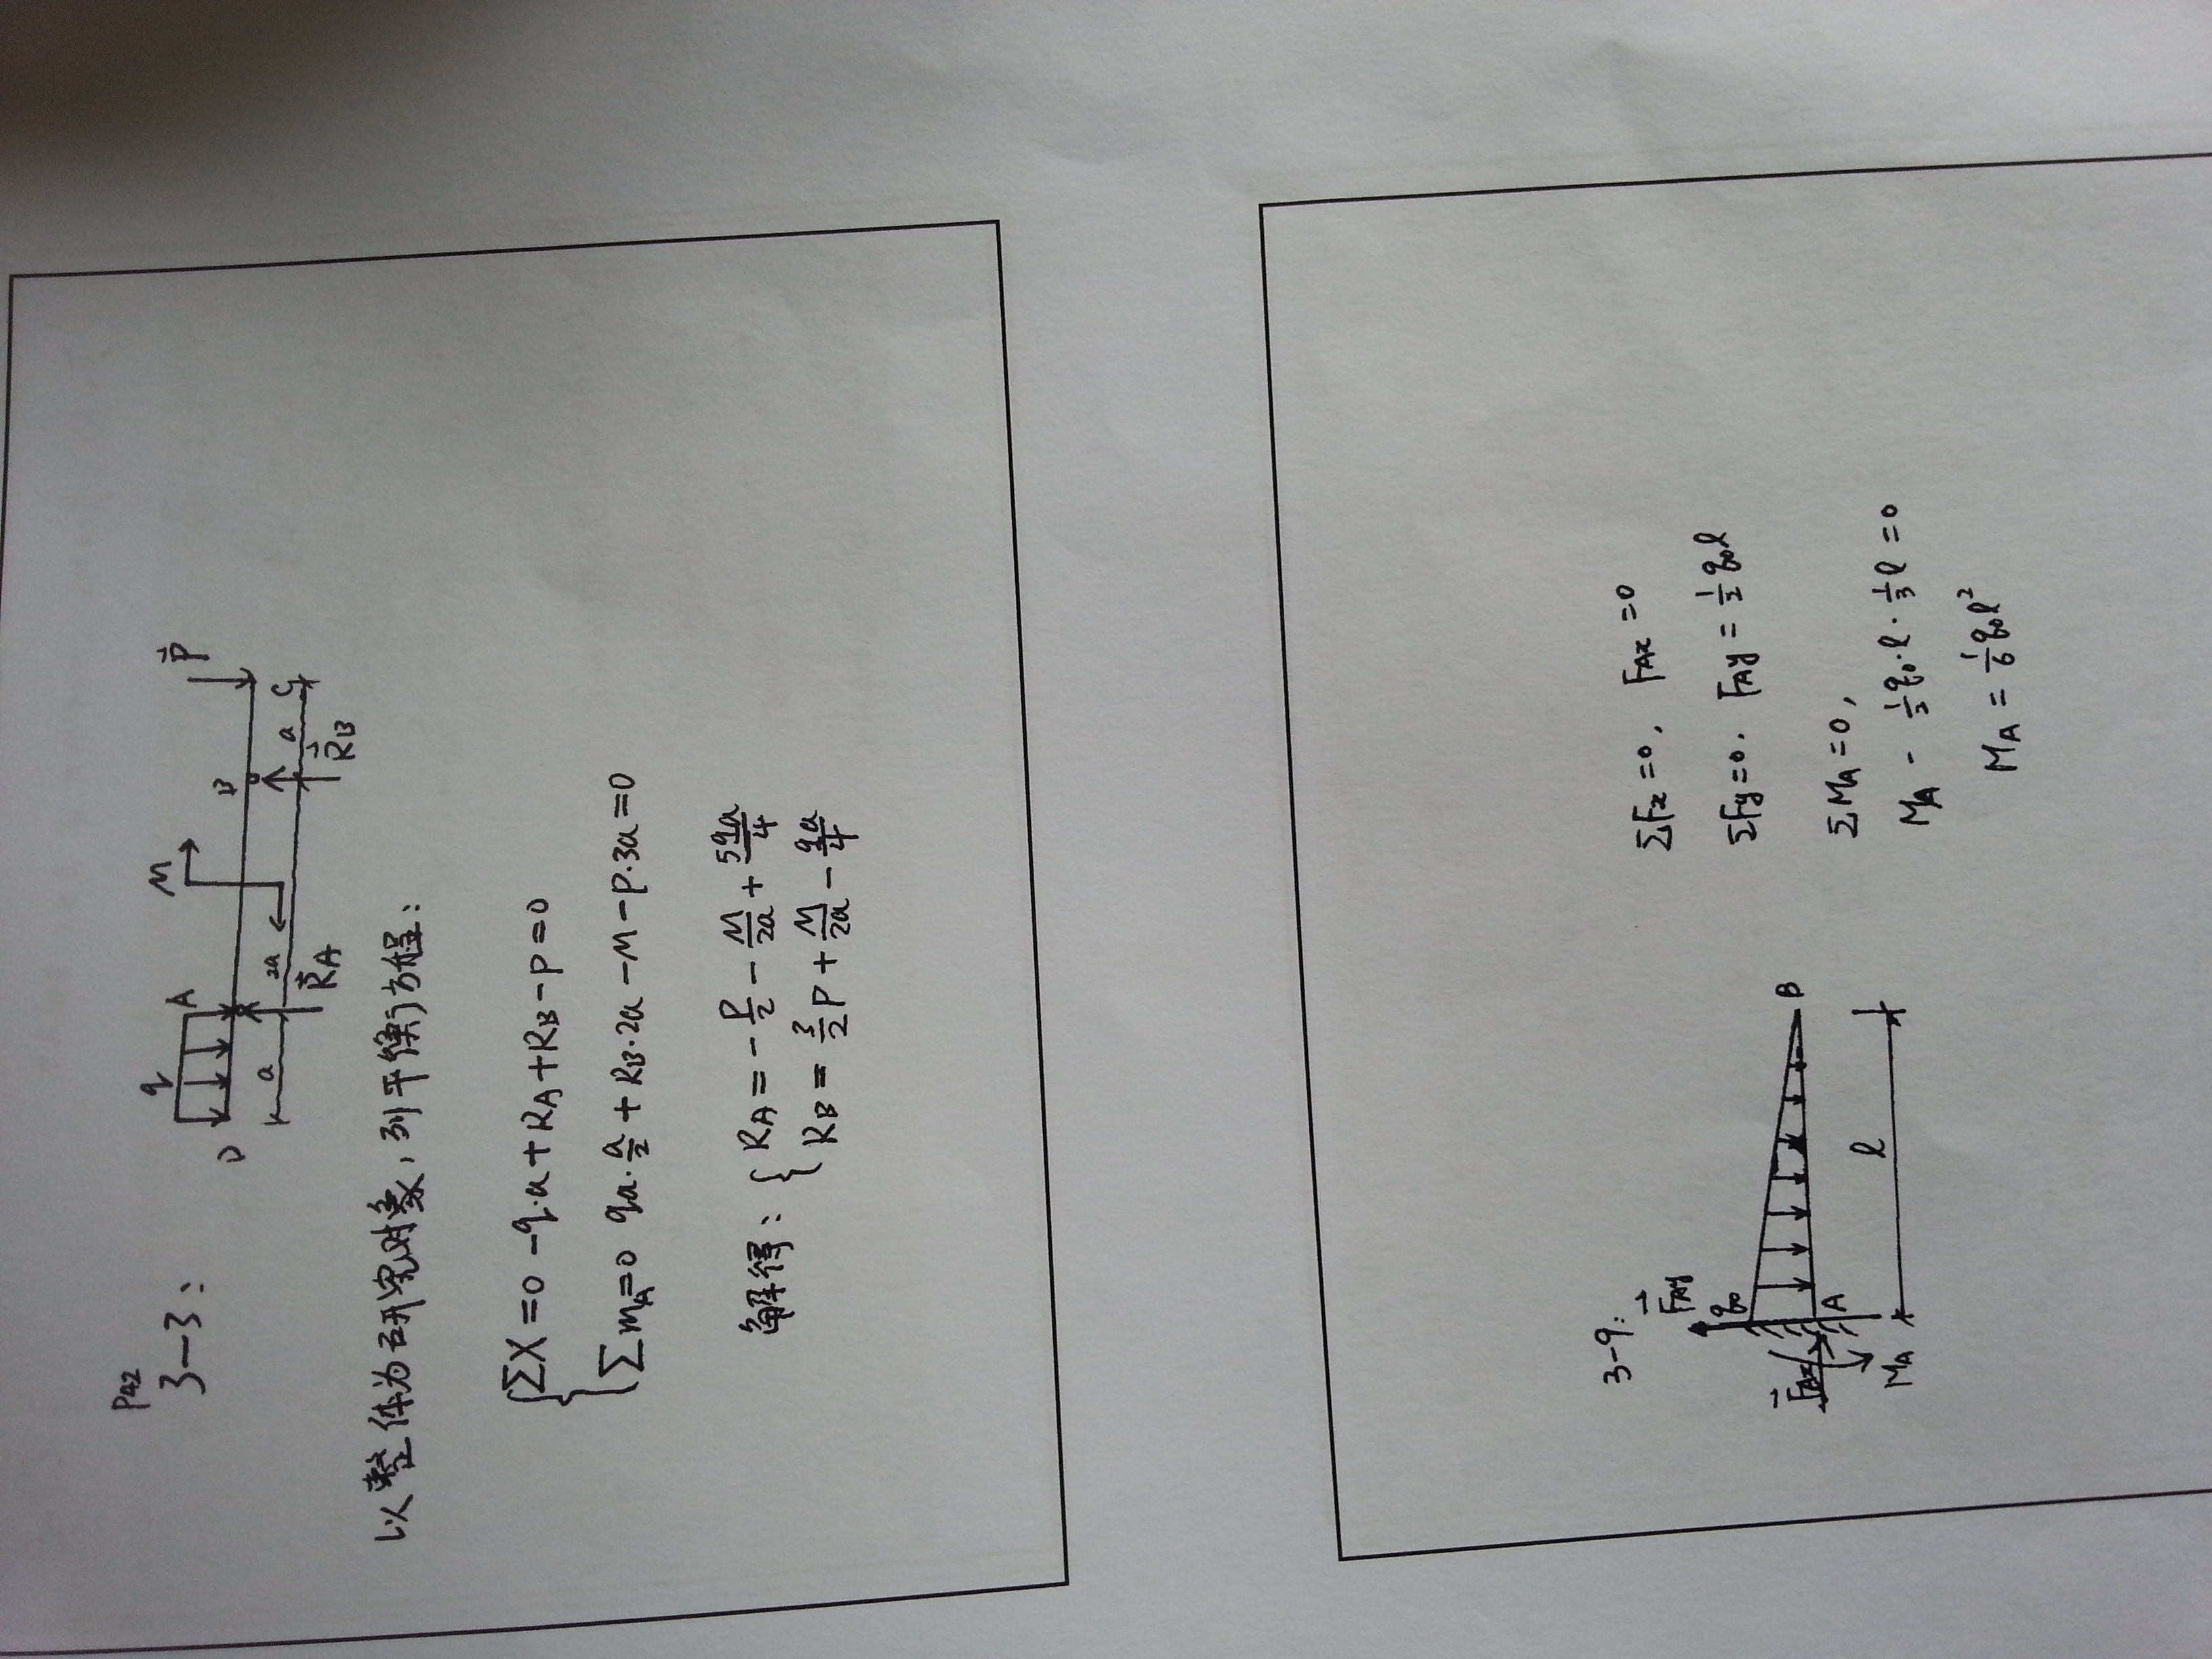 P42
3-3:
q
A
M
P
D
B
a
2a
a
C
RA
RB
以整体为研究对象,列平衡方程:
ΣX=0 -q·a+RA+RB-P=0
ΣmA=0 qa·a/2+RB·2a-M-P·3a=0
解得: { RA=-P/2-M/2a+5qa/4
RB=3/2P+M/2a-qa/4
3-9:
FAy
q0
FAx
A
B
MA
l
ΣFx=0, FAx=0
ΣFy=0. FAy=1/2q0l
ΣMA=0,
MA-1/2q0·l·1/3l=0
MA=1/6q0l²